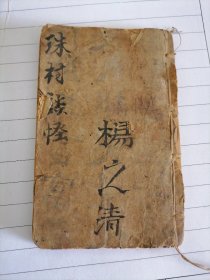 珠村談怪
楊之清